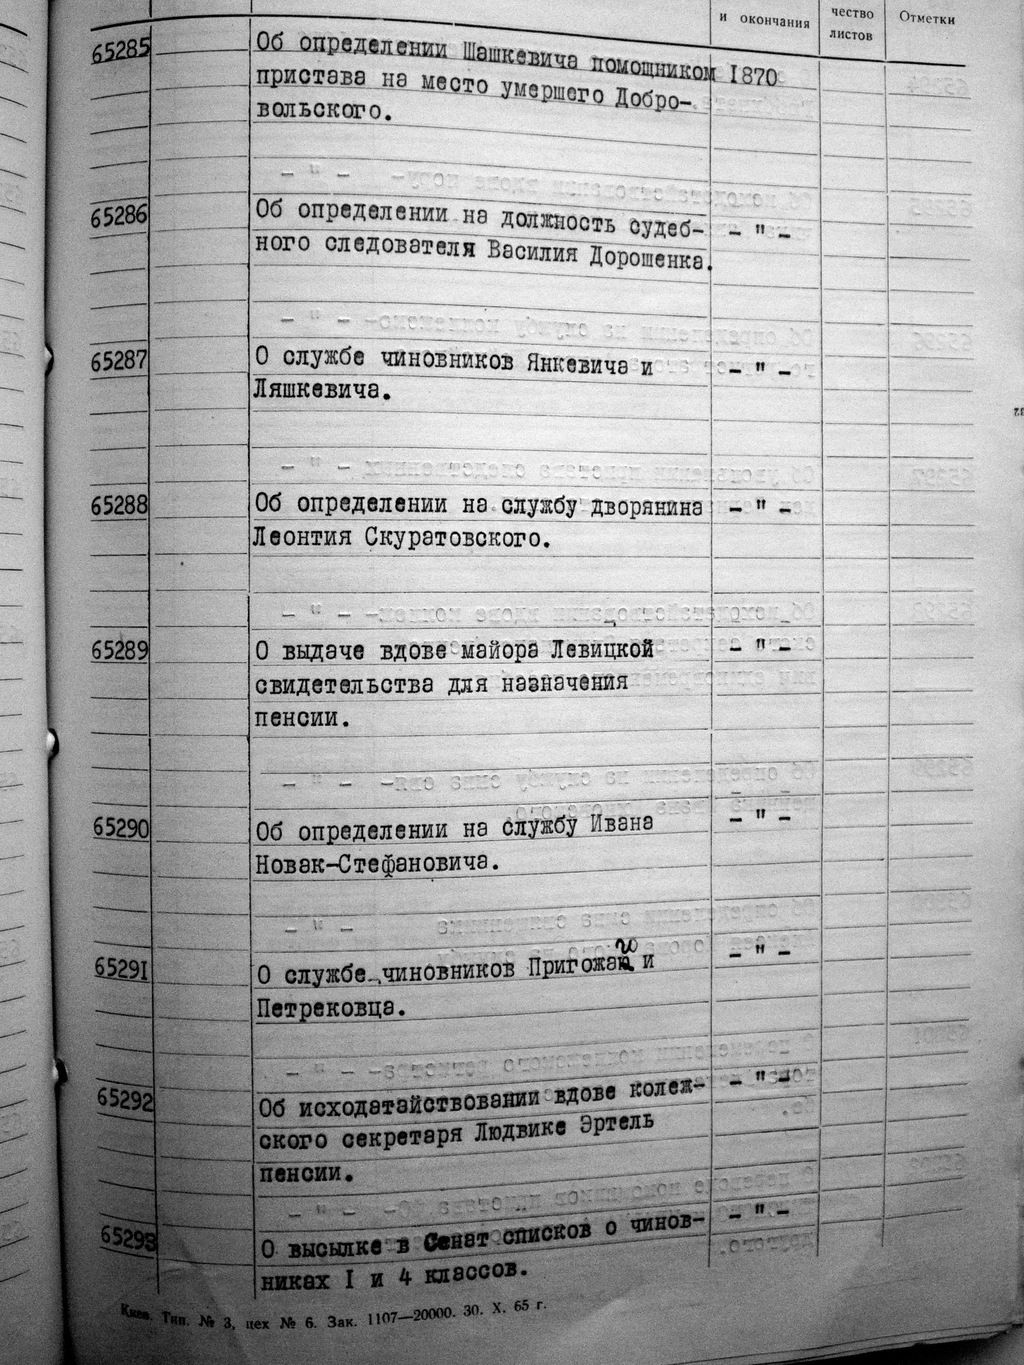 и окончания
чество
листов
Отметки
65285 Об определении Шашкевича помощником 1870
пристава на место умершего Добро-
вольского.
65286 Об определении на должность судеб- - " -
ного следователя Василия Дорошенка.
65287 О службе чиновников Янкевича и - " -
Ляшкевича.
65288 Об определении на службу дворянина - " -
Леонтия Скуратовского.
65289 О выдаче вдове майора Левицкой - " -
свидетельства для назначения
пенсии.
65290 Об определении на службу Ивана - " -
Новак-Стефановича.
65291 О службе чиновников Пригожаго и - " -
Петрековца.
65292 Об исходатайствовании вдове колеж- - " -
ского секретаря Людвике Эртель
пенсии.
65293 О высылке в Сенат списков о чинов- - " -
никах I и 4 классов.
Киев. Тип. № 3, цех № 6. Зак. 1107—20000. 30. X. 65 г.